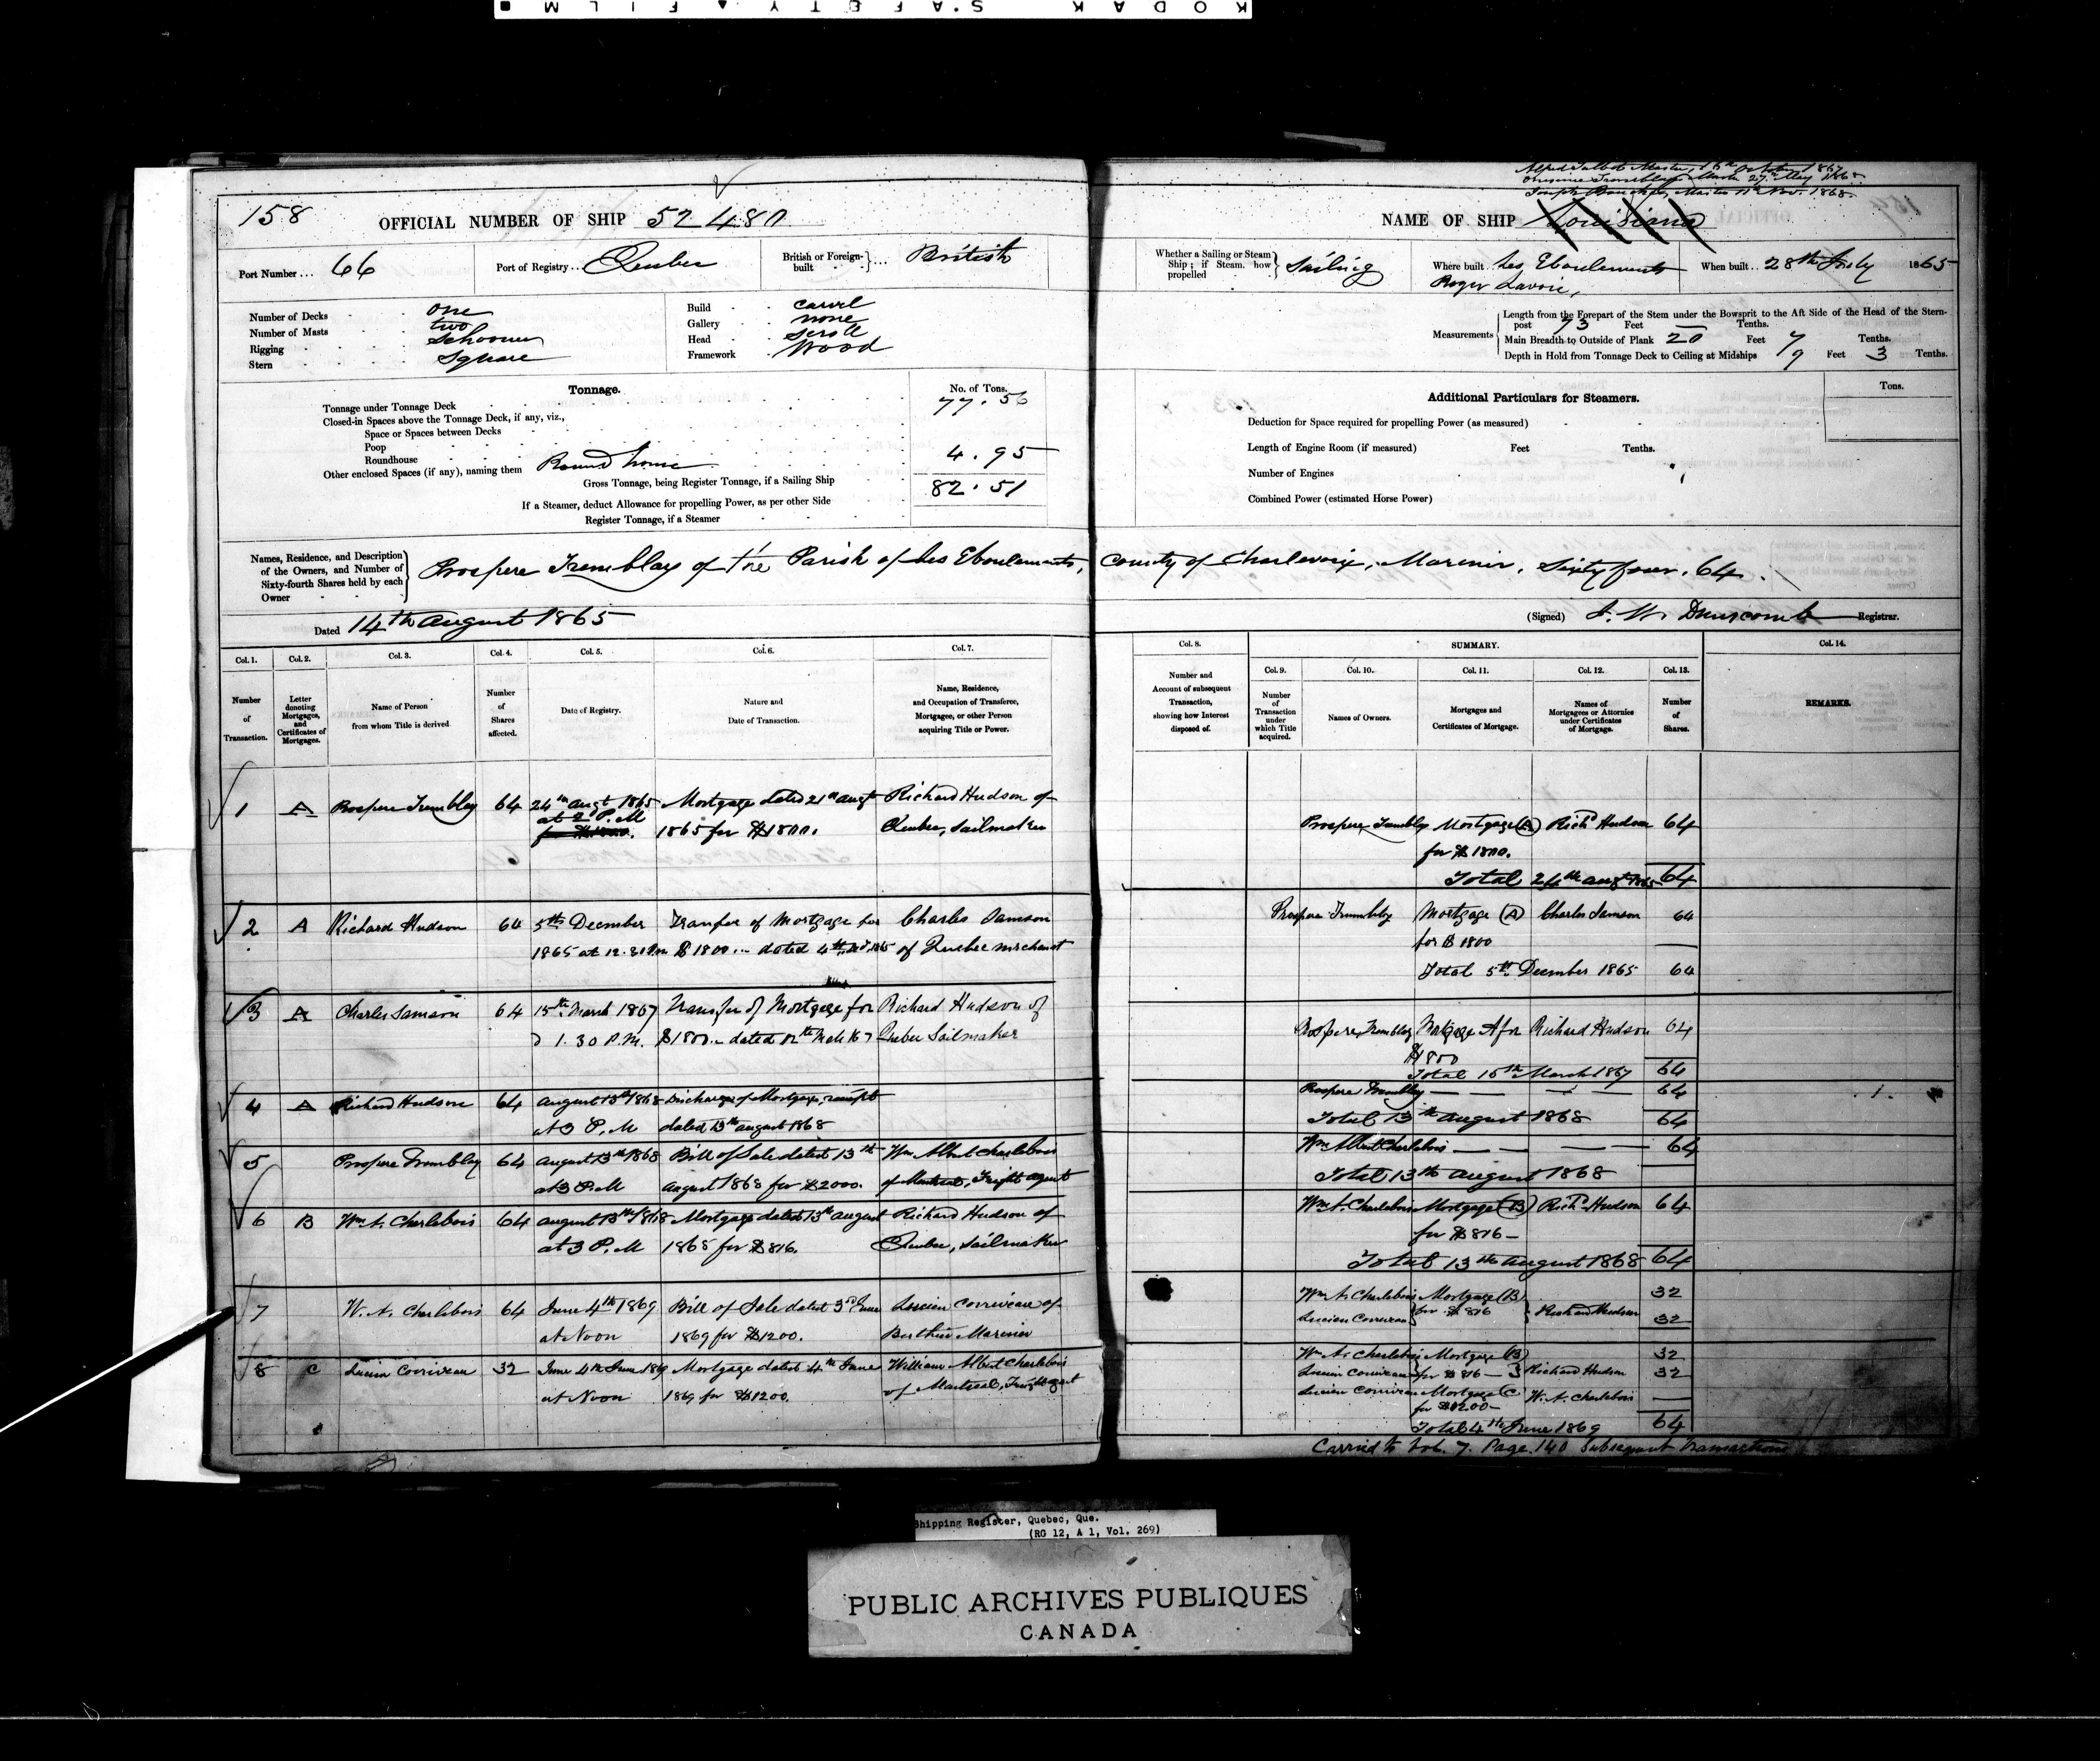 KODAK SAFETY FILM
Alfred Talbot Master, 16th October 1867
Tremblay Master 27th May 1868
Joseph Master 11th Nov. 1868.
158 OFFICIAL NUMBER OF SHIP 52480
NAME OF SHIP Louisiana
Port Number... 66 Port of Registry... Quebec British or Foreign-built }... British
Whether a Sailing or Steam Ship; if Steam, how propelled } Sailing Where built.. Les Eboulements When built.. 28th July 1865
Roger Lavoie,
Number of Decks one
Number of Masts two
Rigging Schooner
Stern Square
Build carvel
Gallery none
Head scroll
Framework Wood
Measurements
Length from the Forepart of the Stem under the Bowsprit to the Aft Side of the Head of the Stern-
post 73 Feet — Tenths.
Main Breadth to Outside of Plank 20 Feet 7 Tenths.
Depth in Hold from Tonnage Deck to Ceiling at Midships 9 Feet 3 Tenths.
Tonnage. No. of Tons.
Tonnage under Tonnage Deck 77.56
Closed-in Spaces above the Tonnage Deck, if any, viz.,
Space or Spaces between Decks
Poop
Roundhouse
Other enclosed Spaces (if any), naming them Round house 4.95
Gross Tonnage, being Register Tonnage, if a Sailing Ship 82.51
If a Steamer, deduct Allowance for propelling Power, as per other Side
Register Tonnage, if a Steamer
Additional Particulars for Steamers. Tons.
Deduction for Space required for propelling Power (as measured)
Length of Engine Room (if measured) Feet Tenths.
Number of Engines
Combined Power (estimated Horse Power)
Names, Residence, and Description
of the Owners, and Number of
Sixty-fourth Shares held by each
Owner
Prospere Tremblay of the Parish of Les Eboulements, County of Charlevoix, Marinir, Sixty four, 64.
Dated 14th August 1865
(Signed) J. W. Dunscomb Registrar.
Col. 1. Col. 2. Col. 3. Col. 4. Col. 5. Col. 6. Col. 7.
Number of Transaction.
Letter denoting Mortgages, and Certificates of Mortgages.
Name of Person from whom Title is derived
Number of Shares affected.
Date of Registry.
Nature and Date of Transaction.
Name, Residence, and Occupation of Transferee, Mortgagee, or other Person acquiring Title or Power.
Col. 8. SUMMARY. Col. 14.
Col. 9. Col. 10. Col. 11. Col. 12. Col. 13.
Number and Account of subsequent Transaction, showing how Interest disposed of.
Number of Transaction under which Title acquired.
Names of Owners.
Mortgages and Certificates of Mortgage.
Names of Mortgagees or Attornies under Certificates of Mortgage.
Number of Shares.
REMARKS.
1 A Prospere Tremblay 64 24th augt 1865 Mortgage dated 21st augt Richard Hudson of
at 2 P.M 1865 for $1800. Quebec, Sailmaker
Prospere Trembly Mortgage (A) Richd Hudson 64
for $1800.
Total 24th augt 1865 64
2 A Richard Hudson 64 5th December Tranfer of Mortgage for Charles Samson
1865 at 12.30 Pm $1800.. dated 4th of Quebec merchant
Prospere Trembley Mortgage (A) Charles Samson 64
for $1800
Total 5th December 1865 64
3 A Charles Samson 64 15th March 1867 Transfer of Mortgage for Richard Hudson of
1.30 P.M. $1800.- dated 12th Mch 67 Quebec Sailmaker
Prospere Tremblay Mortgage A for Richard Hudson 64
$1800
Total 15th March 1867 64
4 A Richard Hudson 64 August 13th 1868 Discharge of Mortgage, receipt
at 3 P.M dated 13th august 1868
Prospere Trembley 64
Total 13th august 1868 64
5 Prospere Tremblay 64 August 13th 1868 Bill of Sale dated 13th Wm Albert Charlebois
at 3 P.M August 1868 for $2000. of Montreal, Freight agent
Wm Albert Charlebois 64
Total 13th August 1868
6 B Wm A. Charlebois 64 August 13th 1868 Mortgage dated 13th august Richard Hudson of
at 3 P.M 1868 for $816. Quebec, Sailmaker
Wm A. Charlebois Mortgage (B) Richd Hudson 64
for $816-
Total 13th August 1868 64
7 W. A. Charlebois 64 June 4th 1869 Bill of Sale dated 3rd June Lucien Corriveau of
at Noon 1869 for $1200. Berthier Marinier
Wm A. Charlebois Mortgage (B) 32
Lucien Corriveau for $816 Richard Hudson 32
8 C Lucien Corriveau 32 June 4th June 1869 Mortgage dated 4th June William Albert Charlebois
at Noon 1869 for $1200. of Montreal, Freight agent
Wm A. Charlebois Mortgage (B) 32
Lucien Corriveau for $816 — Richard Hudson 32
Lucien Corriveau Mortgage C W. A. Charlebois —
for $1200-
Total 4th June 1869 64
Carried to Vol. 7. Page 140 Subsequent Transactions
Shipping Register, Quebec, Que.
(RG 12, A 1, Vol. 269)
PUBLIC ARCHIVES PUBLIQUES
CANADA